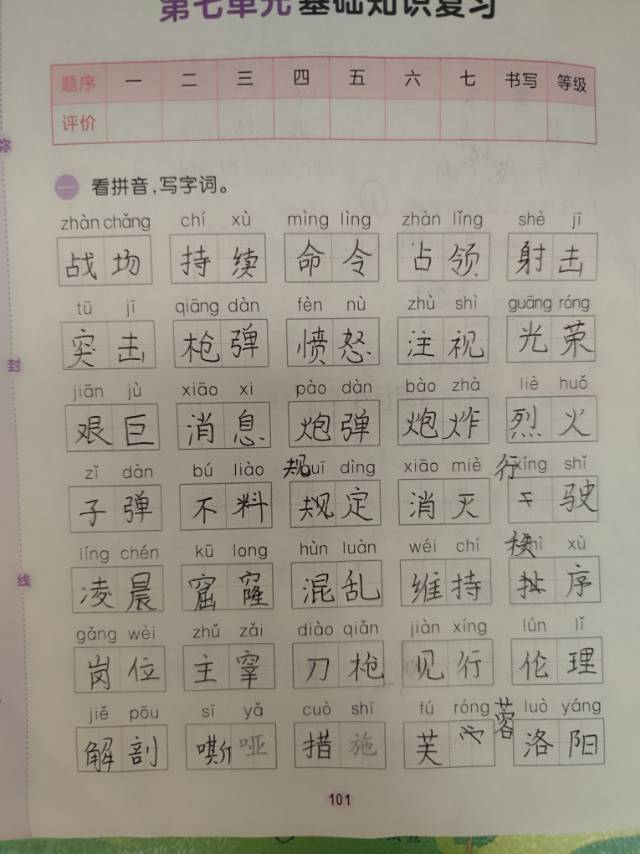 第七单元 基础知识复习
题序 一 二 三 四 五 六 七 书写 等级
评价
一 看拼音，写字词。
zhàn chǎng chí xù mìng lìng zhàn lǐng shè jī
战场 持续 命令 占领 射击
tū jī qiāng dàn fèn nù zhù shì guāng róng
突击 枪弹 愤怒 注视 光荣
jiān jù xiāo xi pào dàn bào zhà liè huǒ
艰巨 消息 炮弹 炮炸 烈火
zǐ dàn bú liào 规uī dìng xiāo miè 行xíng shǐ
子弹 不料 规定 消灭 驶
líng chén kū long hùn luàn wéi chí 秩hì xù
凌晨 窟窿 混乱 维持 序
gǎng wèi zhǔ zǎi diào qiǎn jiàn xíng lún lǐ
岗位 主宰 刀枪 见行 伦理
jiě pōu sī yǎ cuò shī fú róng 蓉 luò yáng
解剖 嘶哑 措施 芙 洛阳
101
封
线